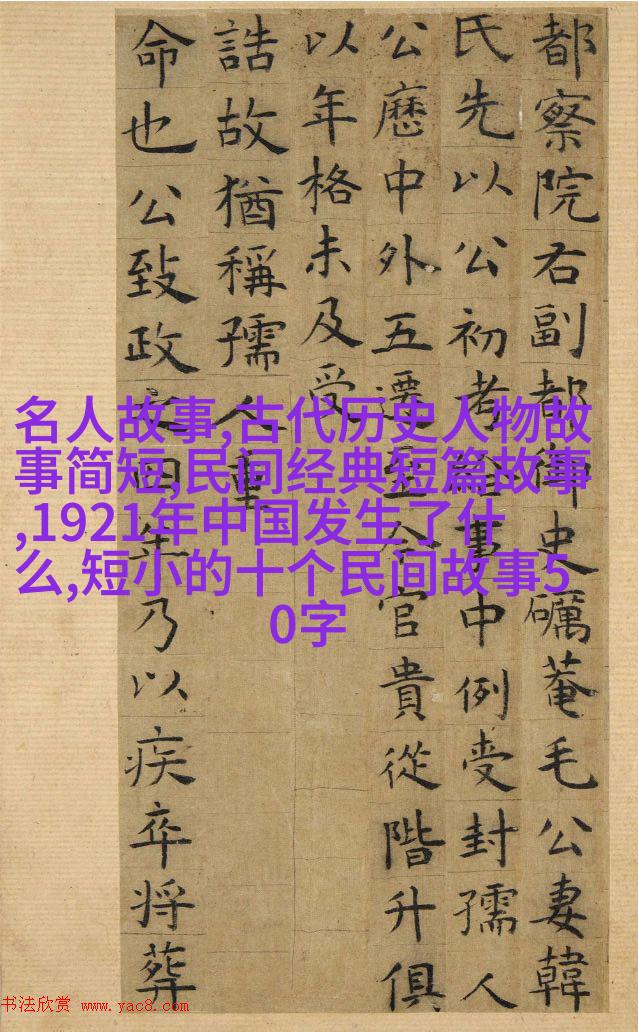 都察院右副都御史礪菴毛公妻韓
氏先以公初考給事中例受封孺人
公歷中外五遷至今官貴從階升俱
以年格未及受
誥故猶稱孺人重
命也公致政之四年乃以疾卒將葬
名人故事,古代历史人物故
事简短,民间经典短篇故事
,1921年中国发生了什
么,短小的十个民间故事5
0字
书法欣赏 www.yac8.com